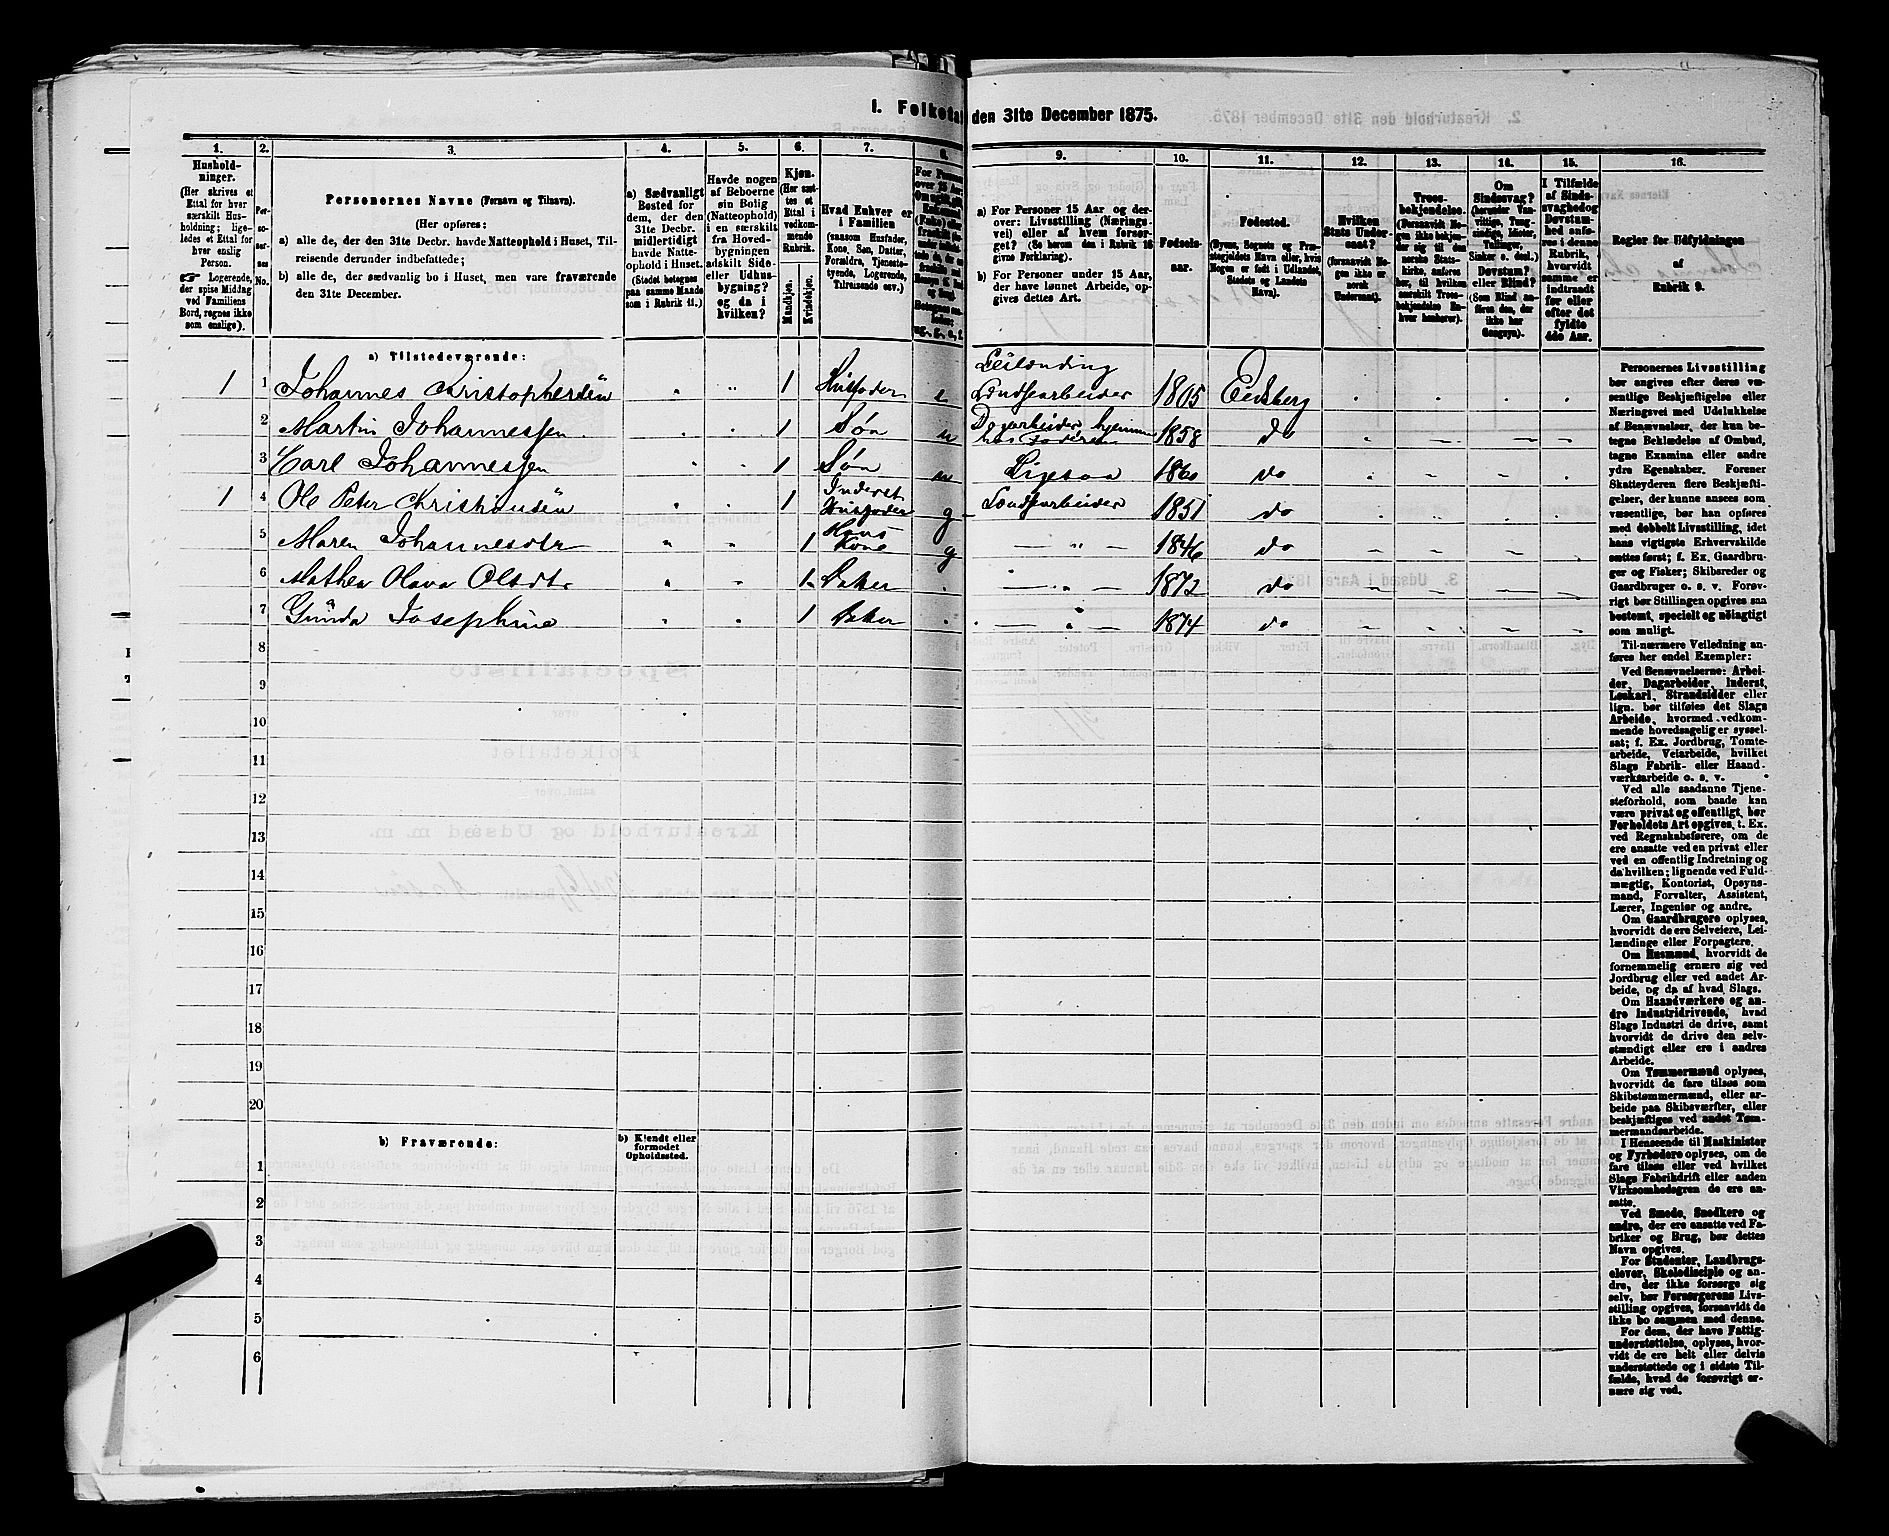 1. Folketal den 31te December 1875.
1. 2. 3. 4. 5. 6. 7. 8. 9. 10. 11. 12. 13. 14. 15. 16.
Hushold-
ninger.
(Her skrives et
Ettal for hver
særskilt Hus-
holdning; lige-
ledes et Ettal for
hver enslig
Person.
☞ Logerende,
der spise Middag
ved Familiens
Bord, regnes ikke
som enslige).
Per-
so-
ner-
nes
No.
Personernes Navne (Fornavn og Tilnavn).
(Her opføres:
a) alle de, der den 31te Decbr. havde Natteophold i Huset, Til-
reisende derunder indbefattede;
b) alle de, der sædvanlig bo i Huset, men vare fraværende
den 31te December.
a) Sædvanligt
Bosted for
dem, der den
31te Decbr.
midlertidigt
havde Natte-
ophold i Huset.
(Stedet betegnes
paa samme Maade
som i Rubrik 11.)
Havde nogen
af Beboerne
sin Bolig
(Natteophold)
i en særskilt
fra Hoved-
bygningen
adskilt Side-
eller Udhus-
bygning?
og da i
hvilken?
Kjøn.
(Her sæt-
tes et
Ettal i
vedkom-
mende
Rubrik.
Mandkjøn.
Kvindekjøn.
Hvad Enhver er
i Familien
(saasom Husfader,
Kone, Søn, Datter,
Forældre, Tjeneste-
tyende, Logerende,
Tilreisende osv.)
a) For Personer 15 Aar og der-
over: Livsstilling (Nærings-
vei) eller af hvem forsør-
get? (Se herom den i Rubrik 16
givne Forklaring).
b) For Personer under 15 Aar,
der have lønnet Arbeide, op-
gives dettes Art.
Fødsels-
aar.
Fødested.
(Byens, Sognets og Præ-
stegjeldets Navn, eller, hvis
Nogen er født i Udlandet,
Stedets og Landets
Navn).
Hvilken
Stats Under-
saat?
(forsaavidt No-
gen ikke er
norsk
Undersaat).
Troes-
bekjendelse.
(Forsaavidt No-
gen ikke bekjen-
der sig til den
norske Stats-
kirke, anføres
her, til hvilken
særskilt Troes-
bekjendelse En-
hver henhører).
Om
Sindssvag?
(herunder Van-
vittige, Tung-
sindige, Idioter,
Tullinger,
Sinker o. desl.)
Døvstum?
eller Blind?
(Som Blind an-
føres den, der
ikke har
Gangsyn).
I Tilfælde
af Sinds-
svaghed og
Døvstum-
hed anfø-
res i denne
Rubrik,
hvorvidt
samme er
indtraadt
før eller
efter det
fyldte
4de Aar.
Regler for Udfyldningen
af
Rubrik 9.
a) Tilstedeværende:
1 1 Johannes Christophersen 1 Husfader e Leilænding Landsarbeider 1805 Eidsberg
2 Martin Johannessen 1 Søn u Dagarbeider hjemme hos Faderen 1858 do
3 Carl Johannessen 1 Søn u Ligesaa 1860 do
1 4 Ole Peter Christiansen 1 Inderst Husfader g Landsarbeider 1851 do
5 Maren Johannesdtr 1 Hans Kone g — " — 1846 do
6 Mathea Olava Olsdtr 1 Datter — " — 1872 do
7 Gunda Josephine 1 Datter — " — 1874 do
8
9
10
11
12
13
14
15
16
17
18
19
20
b) Fraværende:
b) Kjendt eller
formodet
Opholdssted.
1
2
3
4
5
6
Personernes Livsstilling
bør angives efter deres væ-
sentlige Beskjæftigelse eller
Næringsvei med Udelukkelse
af Benævnelser, der kun be-
tegne Beklædelse af Ombud,
tagne Examina eller andre
ydre Egenskaber. Forener
Skatteyderen flere Beskjæfti-
gelser, der kunne ansees som
væsentlige, bør han opføres
med dobbelt Livsstilling, idet
hans vigtigste Erhvervskilde
sættes først; f. Ex. Gaardbru-
ger og Fisker; Skibsreder og
Gaardbruger o. s. v. Forøv-
rigt bør Stillingen opgives saa
bestemt, specielt og nøiagtigt
som muligt.
Til nærmere Veiledning an-
føres her endel Exempler:
Ved Benævnelserne: Arbei-
der, Dagarbeider, Inderst,
Løskarl, Strandsidder eller
lign. bør tilføies det Slags
Arbeide, hvormed vedkom-
mende hovedsagelig er syssel-
sat; f. Ex. Jordbrug, Tomte-
arbeide, Veiarbeide, hvilket
Slags Fabrik- eller Haand-
værksarbeide o. s. v.
Ved alle saadanne Tjene-
steforhold, som baade kan
være privat og offentligt, bør
Forholdets Art opgives, t. Ex.
ved Regnskabsførere, om de
ere ansatte ved en privat eller
ved en offentlig Indretning og
da hvilken; lignende ved Fuld-
mægtig, Kontorist, Opsyns-
mand, Forvalter, Assistent,
Lærer, Ingeniør og andre.
Om Gaardbrugere oplyses,
hvorvidt de ere Selveiere, Lei-
lændinge eller Forpagtere.
Om Husmænd, hvorvidt de
fornemmelig ernære sig ved
Jordbrug eller ved andet Ar-
beide, og da af hvad Slags.
Om Haandværkere og an-
dre Industridrivende, hvad
Slags Industri de drive, samt
hvorvidt de drive den selv-
stændigt eller ere i andres
Arbeide.
Om Tømmermænd oplyses,
hvorvidt de fare tilsøs som
Skibstømmermænd, eller ar-
beide paa Skibsværfter, eller
beskjæftiges ved andet Tøm-
mermandsarbeide.
I Henseende til Maskinister
og Fyrbødere oplyses, om de
fare tilsøs eller ved hvilket
Slags Fabrikdrift eller anden
Virksomhedsgren de ere an-
satte.
Ved Smede, Snedkere og
andre, der ere ansatte ved Fa-
briker og Brug, bør dettes
Navn opgives.
For Studenter, Landbrugs-
elever, Skoledisciple og an-
dre, der ikke forsørge sig
selv, bør Forsørgerens Livs-
stilling opgives, forsaavidt de
ikke bo sammen med denne.
For dem, der have Fattig-
understøttelse, oplyses, hvor-
vidt de ere helt eller delvis
understøttede og i sidste Til-
fælde, hvad de forøvrigt er-
nære sig ved.